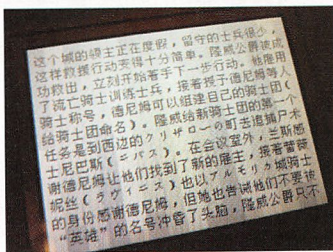 这个城的领主正在度假，留守的士兵很少，
这样救援行动变得十分简单。隆威公爵被成
功救出，立刻开始着手下一步行动。他雇用
了流亡骑士训练士兵，接着授予德尼姆等人
骑士称号，德尼姆可以组建自己的骑士团（
给骑士团命名）。隆威给新骑士团的第一个
任务是到西边的クリザローの町去追捕尸术
士尼巴斯（ニバス）。在会议室外，兰斯感
谢德尼姆让他们找到了新的雇主，接着蕾薇
妮丝（ラヴィニス）也以アルモリカ城骑士
的身份感谢德尼姆，但她也告诫他们不要被
“英雄”的名号冲昏了头脑，隆威公爵只不